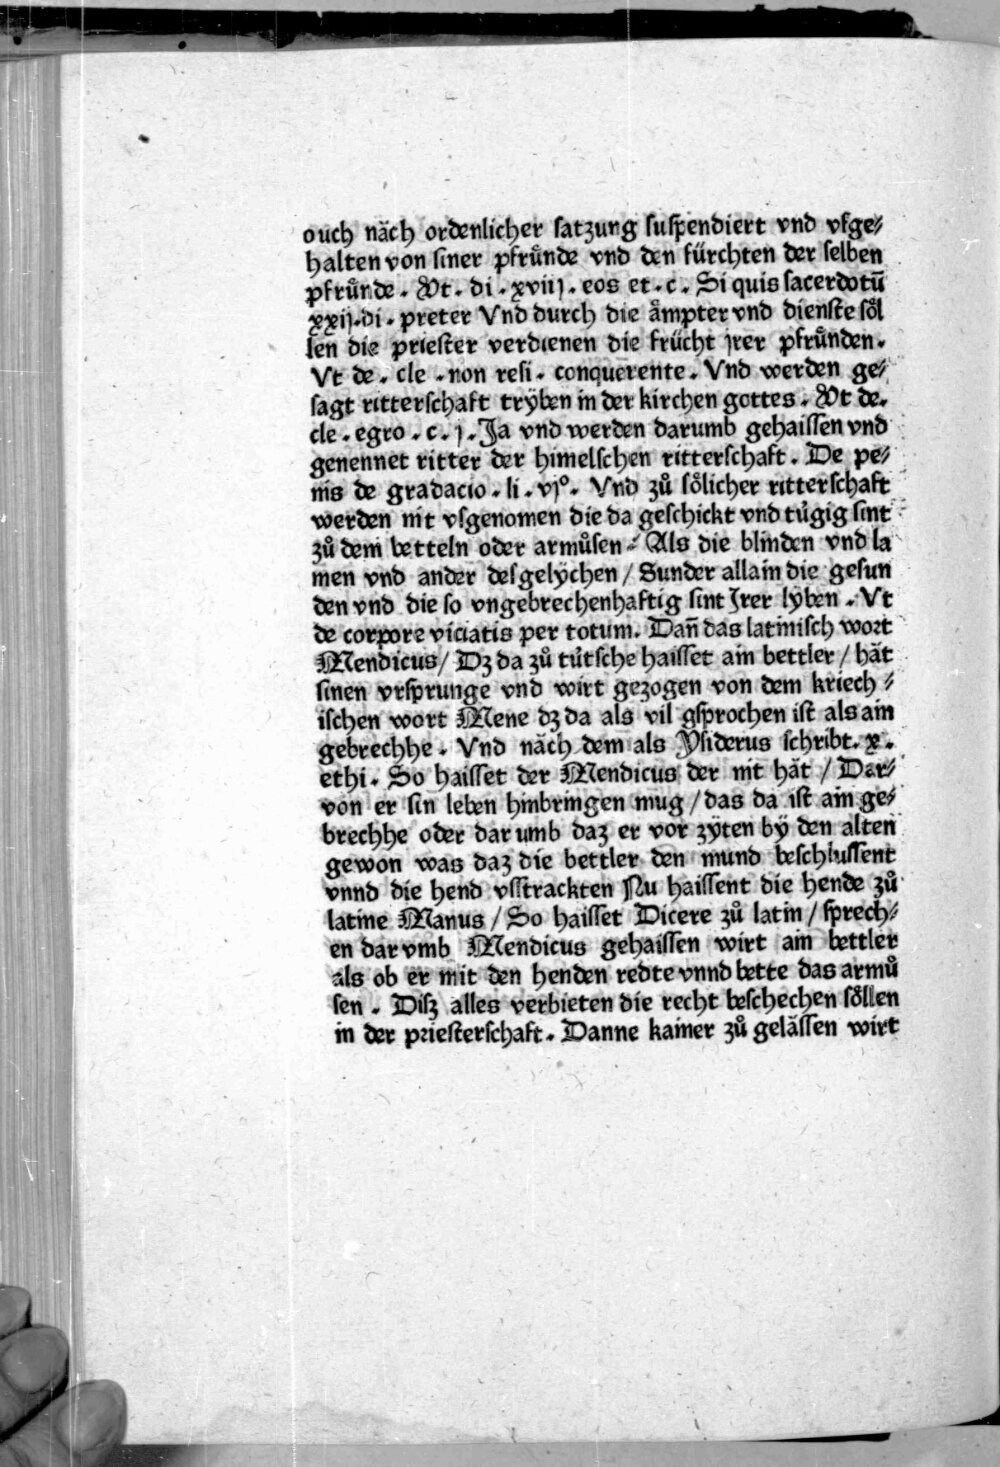 ouch nǎch ordenlicher satzung suspendiert vnd vfge⸗
halten von siner pfrůnde vnd den fürchten der selben
pfrůnde. Vt. di. xviij. eos et. c. Si quis sacerdotū
xxij. di. preter Vnd durch die åmpter vnd dienste söl
len die priester verdienen die frücht jrer pfrůnden.
Vt de. cle. non resi. conquerente. Vnd werden ge⸗
sagt ritterschaft trÿben in der kirchen gottes. Vt de.
cle. egro. c. j. Ja vnd werden darumb gehaissen vnd
genennet ritter der himelschen ritterschaft. De pe⸗
nis de gradacio. li. vjº. Vnd zů sölicher ritterschaft
werden nit vsgenomen die da geschickt vnd tügig sint
zů dem betteln oder armůsen. Als die blinden vnd la
men vnd ander desgelÿchen / Sunder allain die gesun
den vnd die so vngebrechenhaftig sint Jrer lÿben. Vt
de corpore viciatis per totum. Dañ das latinisch wort
Mendicus / Dz da zů tütsche haisset ain bettler / hǎt
sinen vrsprunge vnd wirt gezogen von dem kriech⸗
ischen wort Mene dz da als vil gsprochen ist als ain
gebrechhe. Vnd nǎch dem als Ysiderus schribt. x.
ethi. So haisset der Mendicus der nit hǎt / Dar⸗
von er sin leben hinbringen mug / das da ist ain ge⸗
brechhe oder dar umb daz er vor zÿten bÿ den alten
gewon was daz die bettler den mund beschlussent
vnnd die hend vsstrackten Nu haissent die hende zů
latine Manus / So haisset Dicere zů latin / sprech⸗
en dar vmb Mendicus gehaissen wirt ain bettler
als ob er mit den henden redte vnnd bette das armů
sen. Disz alles verbieten die recht beschechen söllen
in der priesterschaft. Danne kainer zů gelǎssen wirt